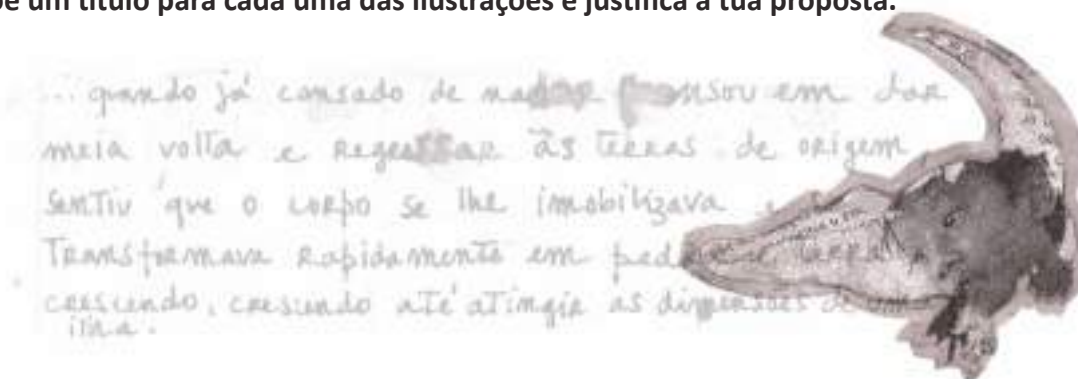 um título para cada uma das ilustrações e justifica a tua proposta.
... quando já cansado de nadar pensou em dar
meia volta e regressar às terras de origem
sentiu que o corpo se lhe imobilizava e
transformava rapidamente em pedra e terra
crescendo, crescendo até atingir as dimensões de uma
ilha.